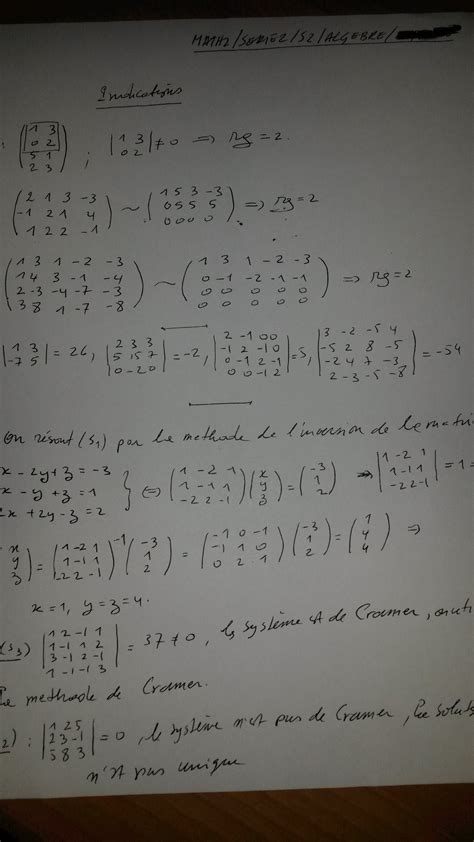 MATH2/SERIE2/S2/ALGEBRE/
Indications
: (1 3 / 0 2 / 5 1 / 2 3) ; |1 3 / 0 2| ≠ 0 => rg = 2.
(2 1 3 -3 / -1 2 1 4 / 1 2 2 -1) ~ (1 5 3 -3 / 0 5 5 5 / 0 0 0 0) => rg = 2
(1 3 1 -2 -3 / 1 4 3 -1 -4 / 2 -3 -4 -7 -3 / 3 8 1 -7 -8) ~ (1 3 1 -2 -3 / 0 -1 -2 -1 -1 / 0 0 0 0 0 / 0 0 0 0 0) => rg = 2
|1 3 / -7 5| = 26, |2 3 3 / 5 15 7 / 0 -2 0| = -2, |2 -1 0 0 / -1 2 -1 0 / 0 -1 2 -1 / 0 0 -1 2| = 5, |3 -2 -5 4 / -5 2 8 -5 / -2 4 7 -3 / 2 -3 -5 -8| = -54
On résout (S1) par la methode de l'inversion de la matri
x - 2y + z = -3
x - y + z = 1
2x + 2y - z = 2
} <=> (1 -2 1 / 1 -1 1 / -2 2 -1) (x / y / z) = (-3 / 1 / 2) => |1 -2 1 / 1 -1 1 / -2 2 -1| = 1
x / y / z) = (1 -2 1 / 1 -1 1 / -2 2 -1)-1 (-3 / 1 / 2) = (-1 0 -1 / -1 1 0 / 0 2 1) (-3 / 1 / 2) = (1 / 4 / 4) =>
x = 1, y = z = 4.
(S3) |1 2 -1 1 / 1 -1 1 2 / 3 -1 2 -1 / 1 -1 -1 3| = 37 ≠ 0, le système est de Cramer, on
la methode de Cramer.
2) : |1 2 5 / 2 3 -1 / 5 8 3| = 0, le système n'est pas de Cramer, la solut
n'est pas unique